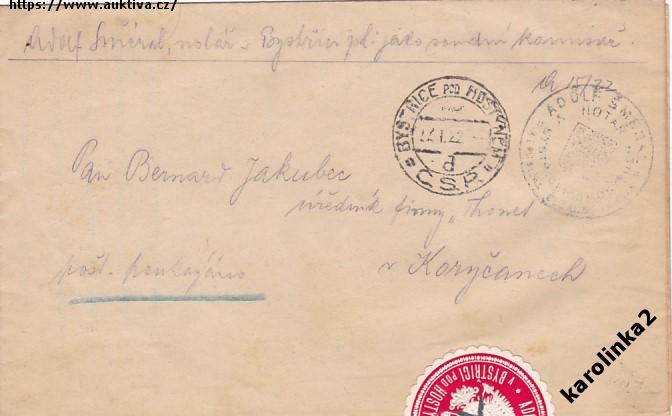 https://www.auktiva.cz/
Adolf Smékal, notář v Bystřici p/H. jako soudní komisař.
15/22
BYSTŘICE POD HOSTÝNEM
1.22
d
Č.S.P.
ADOLF SMÉKAL
NOTÁŘ
Pan Bernard Jakubec
úředník firmy „Thonet
v Koryčanech
pošt.
V BYSTŘICI POD HOSTÝ
AD
karolinka2